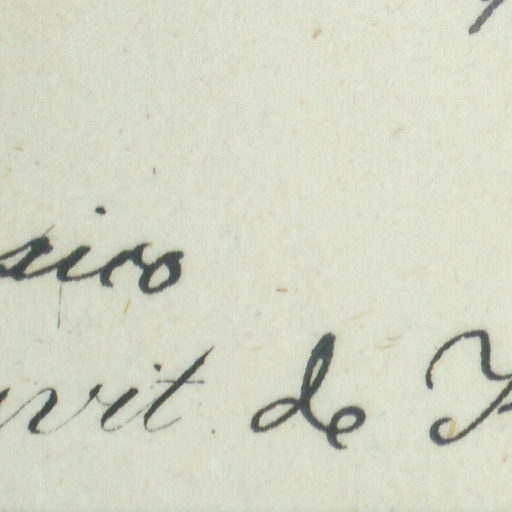 sico
vit. de